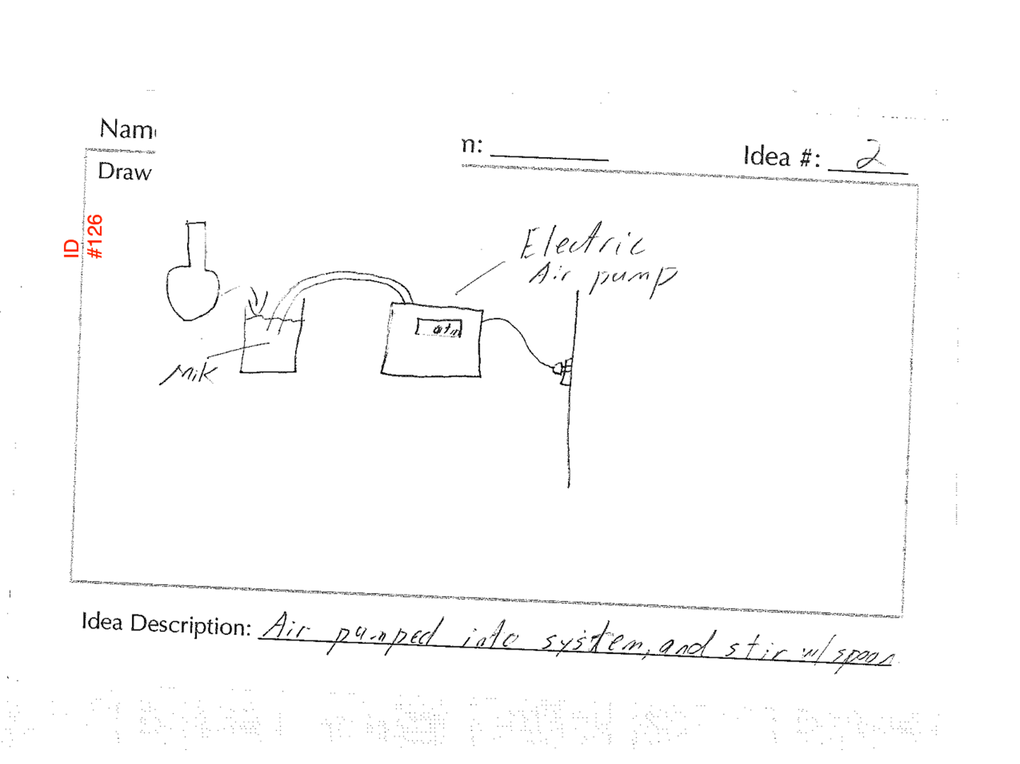 Nam
n:
Idea #: 2
Draw
ID
#126
Electric
Air pump
atm
Milk
Idea Description: Air pumped into system, and stir w/ spoon